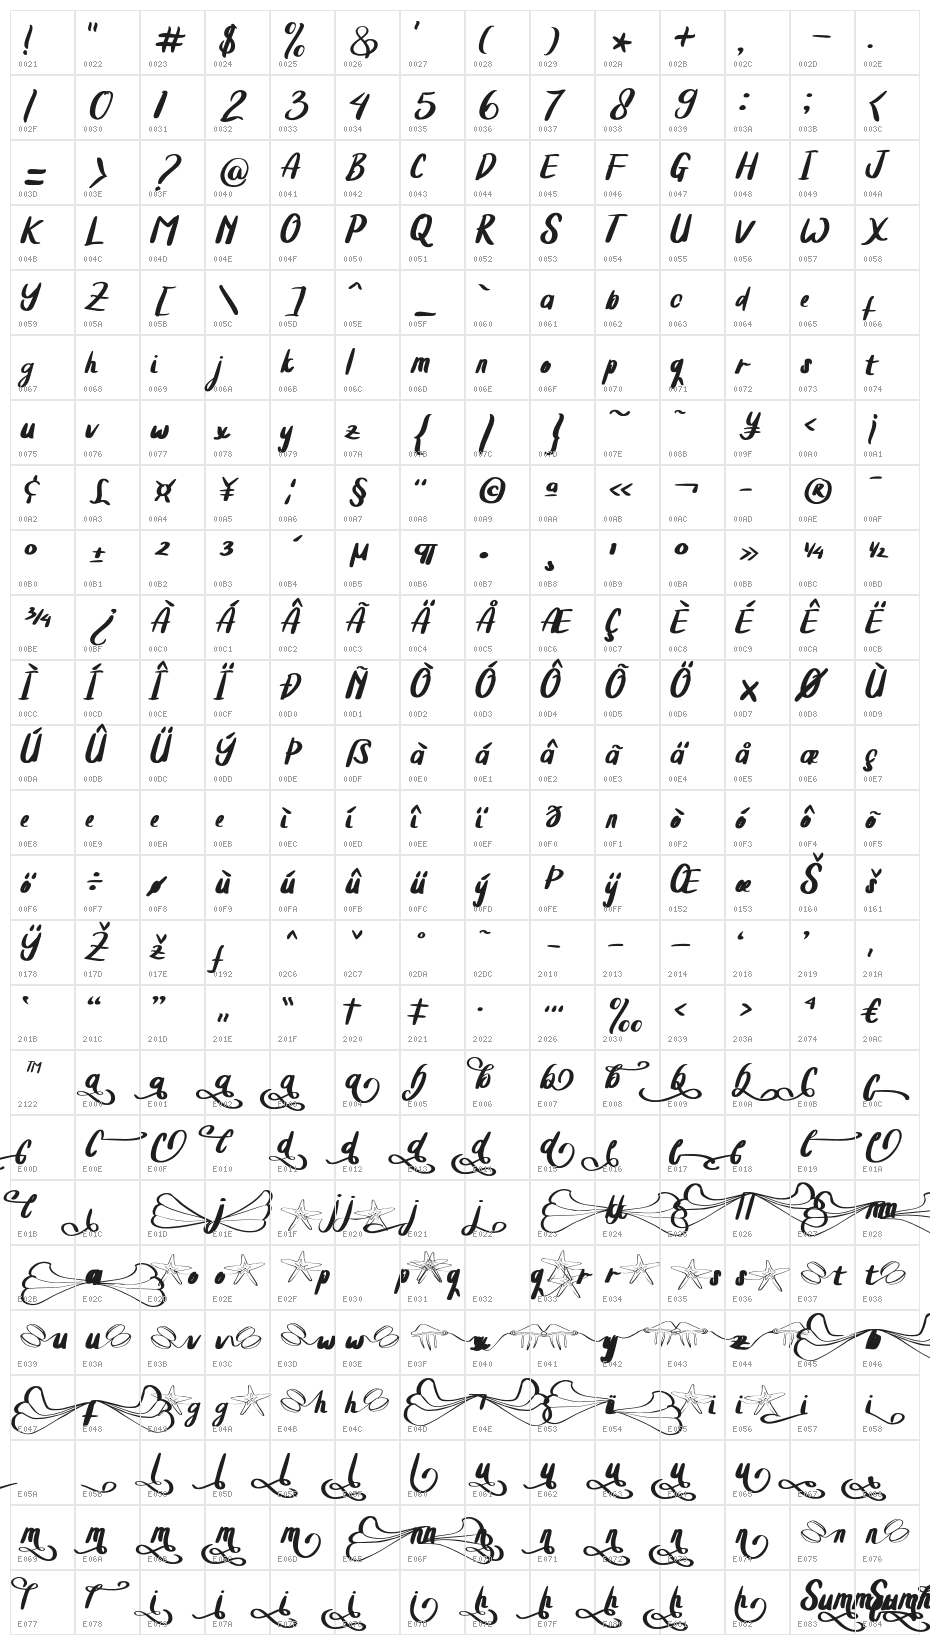 ! " # $ % & ' ( ) * + , - .
0021 0022 0023 0024 0025 0026 0027 0028 0029 002A 002B 002C 002D 002E
/ 0 1 2 3 4 5 6 7 8 9 : ; <
002F 0030 0031 0032 0033 0034 0035 0036 0037 0038 0039 003A 003B 003C
= > ? @ A B C D E F G H I J
003D 003E 003F 0040 0041 0042 0043 0044 0045 0046 0047 0048 0049 004A
K L M N O P Q R S T U V W X
004B 004C 004D 004E 004F 0050 0051 0052 0053 0054 0055 0056 0057 0058
Y Z [ \ ] ^ _ ` a b c d e f
0059 005A 005B 005C 005D 005E 005F 0060 0061 0062 0063 0064 0065 0066
g h i j k l m n o p q r s t
0067 0068 0069 006A 006B 006C 006D 006E 006F 0070 0071 0072 0073 0074
u v w x y z { | } ~ ˜ ¥ < ¡
0075 0076 0077 0078 0079 007A 007B 007C 007D 007E 008B 009F 00A0 00A1
¢ £ ¤ ¥ ¦ § ¨ © ª « ¬ - ® ¯
00A2 00A3 00A4 00A5 00A6 00A7 00A8 00A9 00AA 00AB 00AC 00AD 00AE 00AF
° ± ² ³ ´ µ ¶ · ¸ ¹ º » ¼ ½
00B0 00B1 00B2 00B3 00B4 00B5 00B6 00B7 00B8 00B9 00BA 00BB 00BC 00BD
¾ ¿ À Á Â Ã Ä Å Æ Ç È É Ê Ë
00BE 00BF 00C0 00C1 00C2 00C3 00C4 00C5 00C6 00C7 00C8 00C9 00CA 00CB
Ì Í Î Ï Ð Ñ Ò Ó Ô Õ Ö × Ø Ù
00CC 00CD 00CE 00CF 00D0 00D1 00D2 00D3 00D4 00D5 00D6 00D7 00D8 00D9
Ú Û Ü Ý Þ ß à á â ã ä å æ ç
00DA 00DB 00DC 00DD 00DE 00DF 00E0 00E1 00E2 00E3 00E4 00E5 00E6 00E7
e e e e ì í î ï ð n ò ó ô õ
00E8 00E9 00EA 00EB 00EC 00ED 00EE 00EF 00F0 00F1 00F2 00F3 00F4 00F5
ö ÷ ø ù ú û ü ý þ ÿ Œ œ Š š
00F6 00F7 00F8 00F9 00FA 00FB 00FC 00FD 00FE 00FF 0152 0153 0160 0161
Ÿ Ž ž ƒ ˆ ˇ ˚ ˜ ‐ – — ‘ ’ ‚
0178 017D 017E 0192 02C6 02C7 02DA 02DC 2010 2013 2014 2018 2019 201A
‛ “ ” „ ‟ † ‡ • … ‰ ‹ › ⁴ €
201B 201C 201D 201E 201F 2020 2021 2022 2026 2030 2039 203A 2074 20AC
™ a a a a a b b b b b b c c
2122 E000 E001 E002 E003 E004 E005 E006 E007 E008 E009 E00A E00B E00C
c c c c d d d d d e e e e e
E00D E00E E00F E010 E011 E012 E013 E014 E015 E016 E017 E018 E019 E01A
E01B E01C E01D E01E E01F E020 E021 E022 E023 E024 E025 E026 E027 E028
E02B E02C E02D E02E E02F E030 E031 E032 E033 E034 E035 E036 E037 E038
u u v v w w x y z
E039 E03A E03B E03C E03D E03E E03F E040 E041 E042 E043 E044 E045 E046
E047 E048 E049 E04A E04B E04C E04D E04E E053 E054 E055 E056 E057 E058
E05A E05B E05D E060 E062 E063 E065
E069 E06A E06D E06F E071 E075 E076
E077 E078 E07F E082 E083 E084